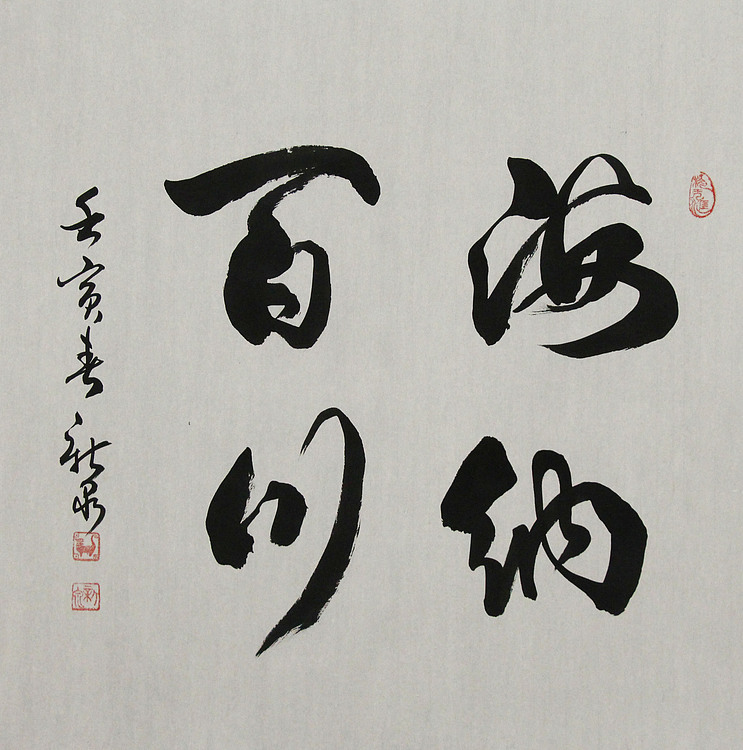 海纳
百川
壬寅春新泉